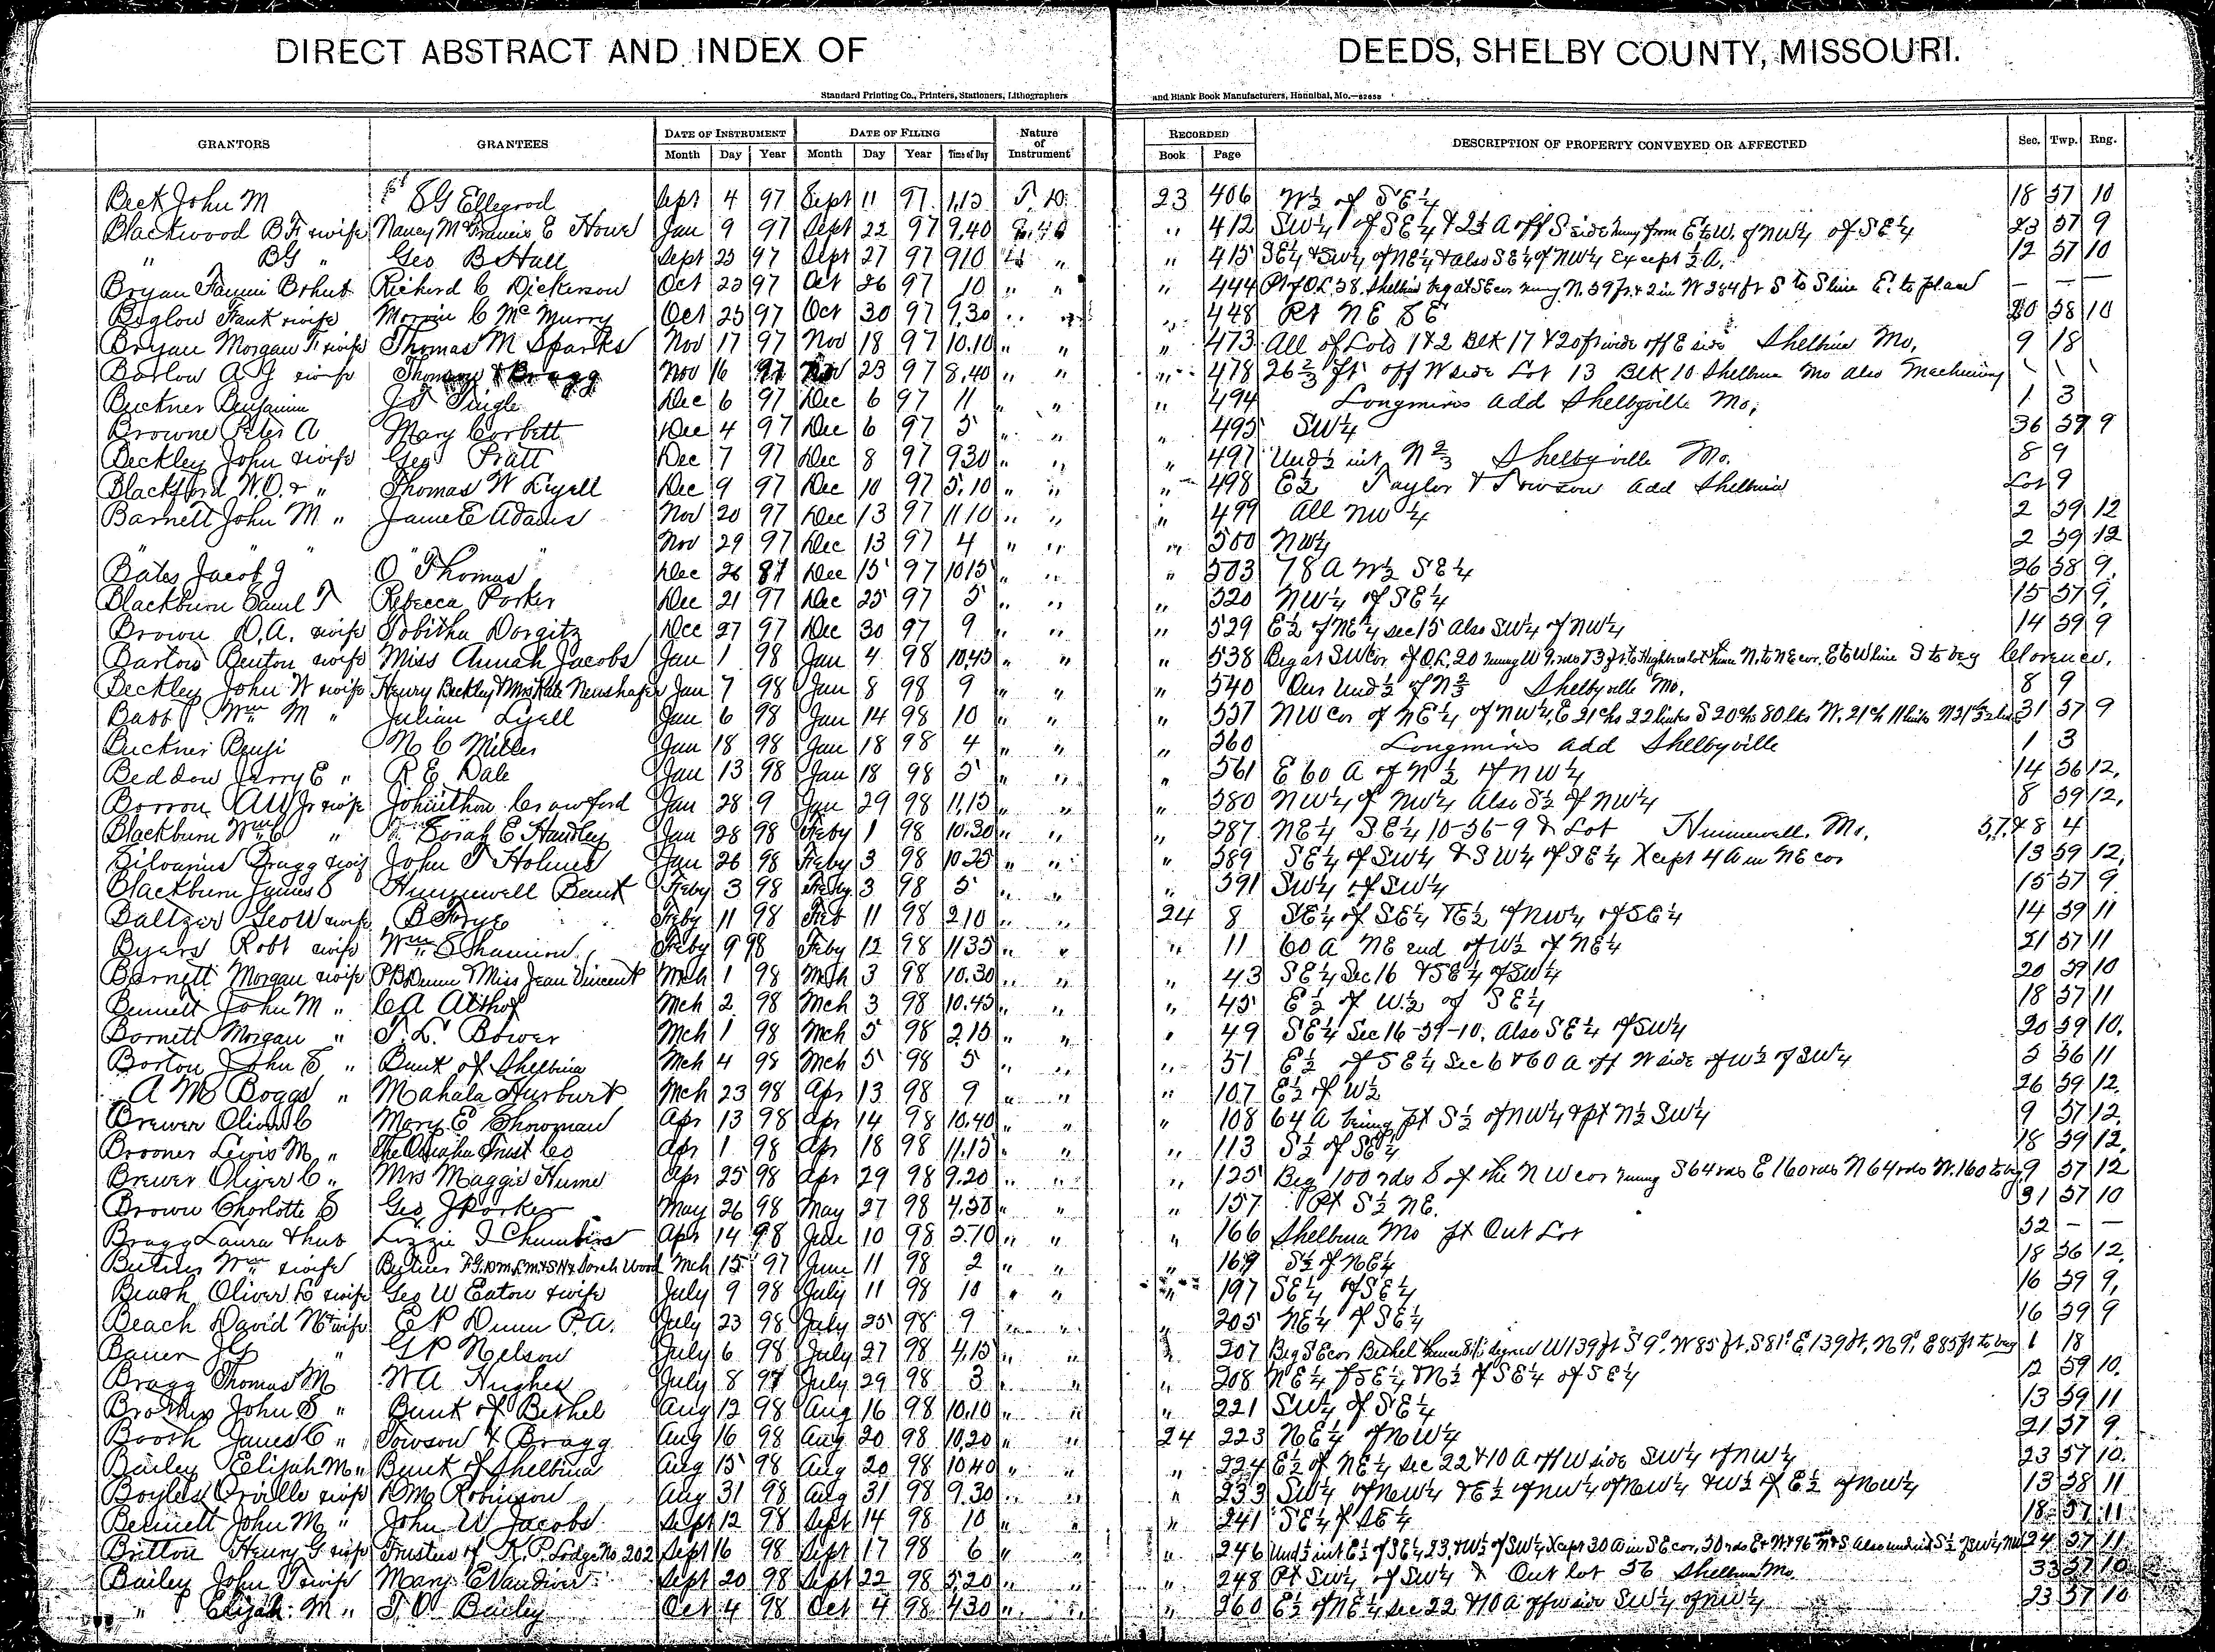 DIRECT ABSTRACT AND INDEX OF DEEDS, SHELBY COUNTY, MISSOURI.
Standard Printing Co., Printers, Stationers, Lithographers and Blank Book Manufacturers, Hannibal, Mo.—
GRANTORS GRANTEES DATE OF INSTRUMENT DATE OF FILING Nature of Instrument RECORDED DESCRIPTION OF PROPERTY CONVEYED OR AFFECTED Sec. Twp. Rng.
Month Day Year Month Day Year Time of Day Book Page
Beck John M S G Ellegood Sept 4 97 Sept 11 97 1.15 23 406 W½ of SE¼ 18 57 10
Blackwood B F & wife Nancy M Francis E Howe Jan 9 97 Sept 22 97 9.40 " 412 SW¼ of SE¼ & 2½ A off S side of NW¼ of SE¼ 23 57 9
" BG " Geo B Hall Sept 23 97 Sept 27 97 910 " " 415 SE¼ & SW¼ of NE¼ & also SE¼ of NW¼ Except ½ A. 12 57 10
Bryan Richard C Dickerson Oct 23 97 Oct 26 97 10 " " " 444 — — —
Biglow Frank & wife C McMurry Oct 25 97 Oct 30 97 9.30 " " " 448 Pt NE SE 20 58 10
Bryan Morgan F & wife Thomas M Sparks Nov 17 97 Nov 18 97 10.10 " " " 473 All of Lots 1 & 2 Blk 17 & 20 ft wide off E side Shelbina Mo, 9 18
Barlow A J & wife Bragg Nov 16 97 Nov 23 97 8.40 " " " 478 26⅔ ft off W side Lot 13 Blk 10 Shelbina Mo also Machinery
Buckner Benjamin J T Tingle Dec 6 97 Dec 6 97 11 " " " 494 Longmires add Shelbyville Mo, 1 3
Browne Peter A Mary Corbett Dec 4 97 Dec 6 97 5 " " " 495 SW¼ 36 57 9
Beckley John & wife Geo Pratt Dec 7 97 Dec 8 97 930 " " " 497 Und ½ int N⅔ Shelbyville Mo. 8 9
Blackford W.O. & " Thomas W Lyell Dec 9 97 Dec 10 97 5.10 " " " 498 E½ Taylor & Towson add Shelbina Lot 9
Barnett John M " James E Adams Nov 20 97 Dec 13 97 11 10 " " " 499 All NW¼ 2 59 12
" " " Nov 29 97 Dec 13 97 4 " " " 500 NW¼ 2 59 12
Bates Jacob J O Thomas Dec 26 87 Dec 15 97 1015 " " " 503 78 A W½ SE¼ 26 58 9
Blackburn Saml T Rebecca Parker Dec 21 97 Dec 25 97 5 " " " 520 NW¼ of SE¼ 15 57 9
Brown D.A. & wife Tobitha Dec 27 97 Dec 30 97 9 " " " 529 E½ of NE¼ sec 15 Also SW¼ of NW¼ 14 59 9
Benton & wife Miss Annah Jacobs Jan 1 98 Jan 4 98 10.45 " " " 538 Beg at SW cor of OL 20 Clarence.
Beckley John W & wife Henry Beckley & Mrs Kate Jan 7 98 Jan 8 98 9 " " " 540 Und ½ of N⅔ Shelbyville Mo. 8 9
Wm M " Julian Lyell Jan 6 98 Jan 14 98 10 " " " 557 NW cor of NE¼ of NW¼ 31 57 9
Buckner Benji N C Miller Jan 18 98 Jan 18 98 4 " " " 560 Longmires add Shelbyville 1 3
Beddow Jerry E " R E Dale Jan 13 98 Jan 18 98 5 " " " 561 E 60 A of N½ of NW¼ 14 56 12
Borron A W Jr & wife Crawford Jan 28 9 Jan 29 98 11.15 " " " 580 NW¼ of NW¼ Also S½ of NW¼ 8 59 12
Blackburn Wm " Sarah E Handley Jan 28 98 Feby 1 98 10.30 " " " 587 NE¼ SE¼ 10-56-9 & Lot Hunnewell, Mo. 8 4
Silvanius Bragg & wife John T Holmes Jan 26 98 Feby 3 98 1025 " " " 589 SE¼ of SW¼ & SW¼ of SE¼ Xcept 4 A in NE cor 13 59 12
Blackburn James S Hunnewell Bank Feby 3 98 Feby 3 98 5 " " " 591 SW¼ of SW¼ 15 57 9
Baltzer Geo W & wife Feby 11 98 Feb 11 98 210 " " 24 8 SE¼ of SE¼ & E½ of NW¼ of SE¼ 14 59 11
Byers Robt & wife Wm Feby 9 98 Feby 12 98 1135 " " " 11 60 A NE end of W½ of NE¼ 21 57 11
Barnett Morgan & wife P B Dunn & Miss Jean Vincent Mch 1 98 Mch 3 98 10.30 " " " 43 SE¼ Sec 16 & SE¼ of SW¼ 20 59 10
Bennett John M " C A Althof Mch 2 98 Mch 3 98 10.45 " " " 45 E½ of W½ of SE¼ 18 57 11
Barnett Morgan " T. L. Bower Mch 1 98 Mch 5 98 2.15 " " " 49 SE¼ Sec 16-59-10, Also SE¼ of SW¼ 20 59 10.
Borton John S " Bank of Shelbina Mch 4 98 Mch 5 98 5 " " " 51 E½ of SE¼ Sec 6 & 60 A off W side of W½ of SW¼ 5 56 11
A M Boggs " Mahala Hurburt Mch 23 98 Apr 13 98 9 " " " 107 E½ of W½ 26 59 12.
Brewer Oliver C Mary E Showman Apr 13 98 Apr 14 98 10.40 " " " 108 64 A being pt S½ of NW¼ & pt N½ SW¼ 9 57 12.
Brooner Lewis M " The Omaha Trust Co Apr 1 98 Apr 18 98 11.15 " " " 113 S½ of SE¼ 18 59 12.
Brewer Oliver C " Mrs Maggie Hume Apr 25 98 Apr 29 98 9.20 " " " 125 Beg 100 rds S of the NW cor runing S 64 rds E 160 rds N 64 rds W. 160 to beg 9 57 12
Brown Charlotte S Geo J Parker May 26 98 May 27 98 4.50 " " " 157 Pt S½ NE. 31 57 10
Bragg Laura & hus Lizzie J Chambers Apr 14 98 Jun 10 98 " " " 166 Shelbina Mo pt Out Lot 52 — —
Wm & wife Sarah Wood Mch 15 97 June 11 98 2 " " " 169 S½ of NE¼ 18 56 12.
Beach Oliver & wife Geo W Eaton & wife July 9 98 July 11 98 10 " " " 197 SE¼ of SE¼ 16 59 9,
Beach David N & wife E P Dunn P.A. July 23 98 July 25 98 9 " " " 205 NE¼ of SE¼ 16 59 9
Bauer J G " G P Nelson July 6 98 July 27 98 4.15 " " " 207 Beg SE cor Bethel 18
Bragg Thomas M W A Hughes July 8 97 July 29 98 3 " " " 208 NE¼ of SE¼ & N½ of SE¼ of SE¼ 12 59 10.
John S " Bank of Bethel Aug 12 98 Aug 16 98 10.10 " " " 221 SW¼ of SE¼ 13 59 11
Booth James C " Towson & Bragg Aug 16 98 Aug 20 98 10.20 " " 24 223 NE¼ of NW¼ 21 57 9.
Bailey Elijah M " Bank of Shelbina Aug 15 98 Aug 20 98 1040 " " " 224 E½ of NE¼ sec 22 & 10 A off W side SW¼ of NW¼ 23 57 10.
Boyles Orville & wife Robinson Aug 31 98 Aug 31 98 9.30 " " " 233 SW¼ of NW¼ & E½ of NW¼ of NW¼ & W½ of E½ of NW¼ 13 58 11
Bennett John M " John W Jacobs Sept 12 98 Sept 14 98 10 " " " 241 SE¼ of SE¼ 18 57 11
Britton Henry G & wife Trustees of K. P. Lodge No 202 Sept 16 98 Sept 17 98 6 " " " 246 24 57 11
Bailey John T & wife Mary E Vandiver Sept 20 98 Sept 22 98 5.20 " " " 248 Pt SW¼ of SW¼ & Out lot 56 Shelbina Mo. 33 57 10
" Elijah M " T. O. Bailey Oct 4 98 Oct 4 98 430 " " " 260 E½ of NE¼ sec 22 & 10 A off W side SW¼ of NW¼ 23 57 10